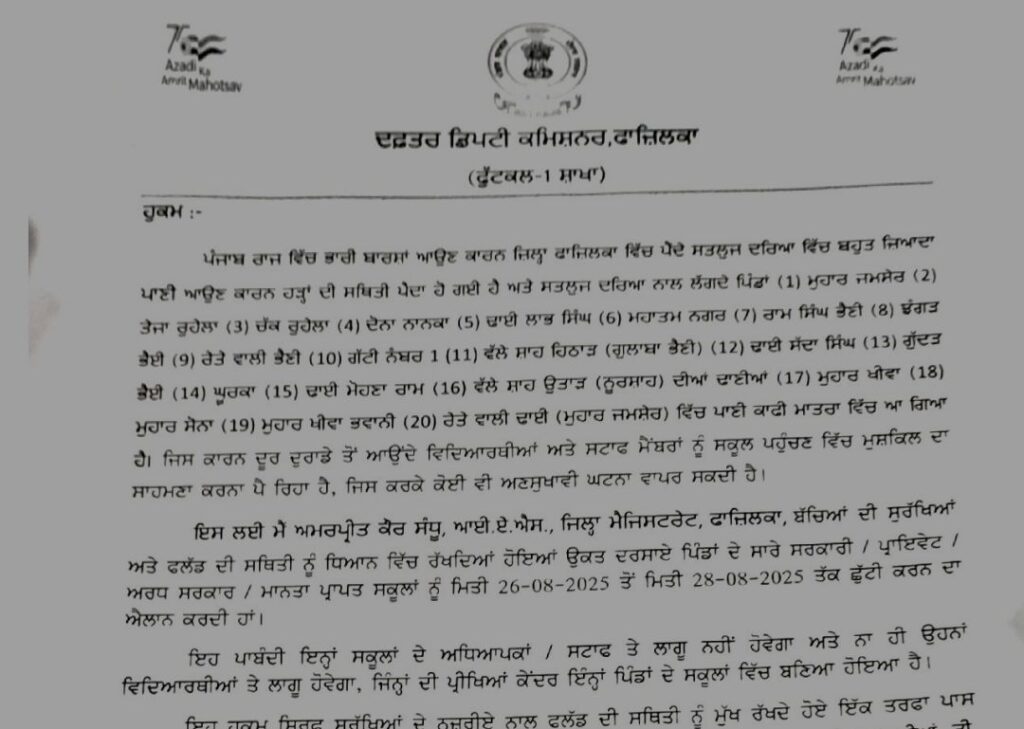 Azadi Ka
Amrit Mahotsav
Azadi Ka
Amrit Mahotsav
ਦਫ਼ਤਰ ਡਿਪਟੀ ਕਮਿਸ਼ਨਰ,ਫਾਜ਼ਿਲਕਾ
(ਫੁੱਟਕਲ-1 ਸ਼ਾਖਾ)
ਹੁਕਮ :-
ਪੰਜਾਬ ਰਾਜ ਵਿੱਚ ਭਾਰੀ ਬਾਰਸ਼ਾਂ ਆਉਣ ਕਾਰਨ ਜਿਲ੍ਹਾ ਫਾਜਿਲਕਾ ਵਿੱਚ ਪੈਂਦੇ ਸਤਲੁਜ ਦਰਿਆ ਵਿੱਚ ਬਹੁਤ ਜਿਆਦਾ
ਪਾਣੀ ਆਉਣ ਕਾਰਨ ਹੜ੍ਹਾਂ ਦੀ ਸਥਿਤੀ ਪੈਦਾ ਹੋ ਗਈ ਹੈ ਅਤੇ ਸਤਲੁਜ ਦਰਿਆ ਨਾਲ ਲੱਗਦੇ ਪਿੰਡਾਂ (1) ਮੁਹਾਰ ਜਮਸੇਰ (2)
ਤੇਜਾ ਰੁਹੇਲਾ (3) ਚੱਕ ਰੁਹੇਲਾ (4) ਦੋਨਾ ਨਾਨਕਾ (5) ਢਾਈ ਲਾਭ ਸਿੰਘ (6) ਮਹਾਤਮ ਨਗਰ (7) ਰਾਮ ਸਿੰਘ ਭੈਣੀ (8) ਝੰਗੜ
ਭੈਈ (9) ਰੇਤੇ ਵਾਲੀ ਭੈਣੀ (10) ਗੱਟੀ ਨੰਬਰ 1 (11) ਵੱਲੇ ਸਾਹ ਹਿਠਾੜ (ਗੁਲਾਬਾ ਭੈਣੀ) (12) ਢਾਈ ਸੱਦਾ ਸਿੰਘ (13) ਗੁੱਦੜ
ਭੈਈ (14) ਘੂਰਕਾ (15) ਢਾਈ ਮੋਹਣਾ ਰਾਮ (16) ਵੱਲੇ ਸ਼ਾਹ ਉਤਾੜ (ਨੂਰਸਾਹ) ਦੀਆਂ ਢਾਣੀਆਂ (17) ਮੁਹਾਰ ਖੀਵਾ (18)
ਮੁਹਾਰ ਸੋਨਾ (19) ਮੁਹਾਰ ਖੀਵਾ ਭਵਾਨੀ (20) ਰੇਤੇ ਵਾਲੀ ਢਾਈ (ਮੁਹਾਰ ਜਮਸੇਰ) ਵਿੱਚ ਪਾਣੀ ਕਾਫੀ ਮਾਤਰਾ ਵਿੱਚ ਆ ਗਿਆ
ਹੈ। ਜਿਸ ਕਾਰਨ ਦੂਰ ਦੁਰਾਡੇ ਤੋਂ ਆਉਂਦੇ ਵਿਦਿਆਰਥੀਆਂ ਅਤੇ ਸਟਾਫ ਮੈਂਬਰਾਂ ਨੂੰ ਸਕੂਲ ਪਹੁੰਚਣ ਵਿੱਚ ਮੁਸ਼ਕਿਲ ਦਾ
ਸਾਹਮਣਾ ਕਰਨਾ ਪੈ ਰਿਹਾ ਹੈ, ਜਿਸ ਕਰਕੇ ਕੋਈ ਵੀ ਅਣਸੁਖਾਵੀ ਘਟਨਾ ਵਾਪਰ ਸਕਦੀ ਹੈ।
ਇਸ ਲਈ ਮੈਂ ਅਮਰਪ੍ਰੀਤ ਕੌਰ ਸੰਧੂ, ਆਈ.ਏ.ਐਸ., ਜਿਲ੍ਹਾ ਮੈਜਿਸਟਰੇਟ, ਫਾਜ਼ਿਲਕਾ, ਬੱਚਿਆਂ ਦੀ ਸੁਰੱਖਿਆਂ
ਅਤੇ ਫਲੱਡ ਦੀ ਸਥਿਤੀ ਨੂੰ ਧਿਆਨ ਵਿੱਚ ਰੱਖਦਿਆਂ ਹੋਇਆਂ ਉਕਤ ਦਰਸਾਏ ਪਿੰਡਾਂ ਦੇ ਸਾਰੇ ਸਰਕਾਰੀ / ਪ੍ਰਾਇਵੇਟ /
ਅਰਧ ਸਰਕਾਰ / ਮਾਨਤਾ ਪ੍ਰਾਪਤ ਸਕੂਲਾਂ ਨੂੰ ਮਿਤੀ 26-08-2025 ਤੋਂ ਮਿਤੀ 28-08-2025 ਤੱਕ ਛੁੱਟੀ ਕਰਨ ਦਾ
ਐਲਾਨ ਕਰਦੀ ਹਾਂ।
ਇਹ ਪਾਬੰਦੀ ਇਨ੍ਹਾਂ ਸਕੂਲਾਂ ਦੇ ਅਧਿਆਪਕਾਂ / ਸਟਾਫ ਤੇ ਲਾਗੂ ਨਹੀਂ ਹੋਵੇਗਾ ਅਤੇ ਨਾ ਹੀ ਉਹਨਾਂ
ਵਿਦਿਆਰਥੀਆਂ ਤੇ ਲਾਗੂ ਹੋਵੇਗਾ, ਜਿੰਨ੍ਹਾਂ ਦੀ ਪ੍ਰੀਖਿਆਂ ਕੇਂਦਰ ਇੰਨ੍ਹਾਂ ਪਿੰਡਾਂ ਦੇ ਸਕੂਲਾਂ ਵਿੱਚ ਬਣਿਆ ਹੋਇਆ ਹੈ।
ਇਹ ਹੁਕਮ ਸਿਰਫ ਸੁਰੱਖਿਆਂ ਦੇ ਨਜ਼ਰੀਏ ਨਾਲ ਫਲੱਡ ਦੀ ਸਥਿਤੀ ਨੂੰ ਮੁੱਖ ਰੱਖਦੇ ਹੋਏ ਇੱਕ ਤਰਫਾ ਪਾਸ